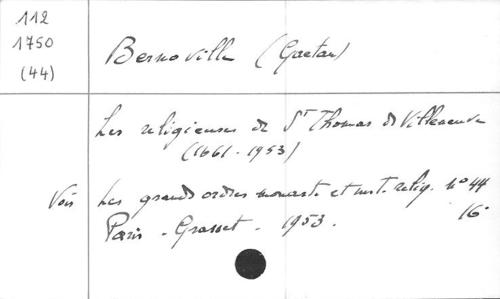 112
1750
(44)
Bernoville (Gaetan)
Les religieuses de St Thomas de Villeneuve
(1661-1953)
Voir Les grands ordres monast. et inst. relig. n° 44
Paris - Grasset - 1953. 16°